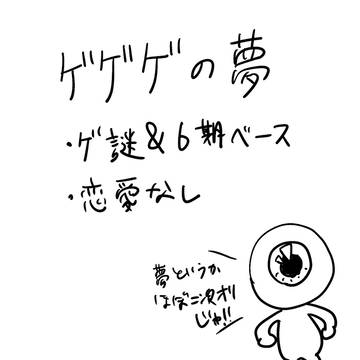 ゲゲゲの夢
・ゲ謎&6期ベース
・恋愛なし
夢というか
ほぼ二次オリ
じゃ!!